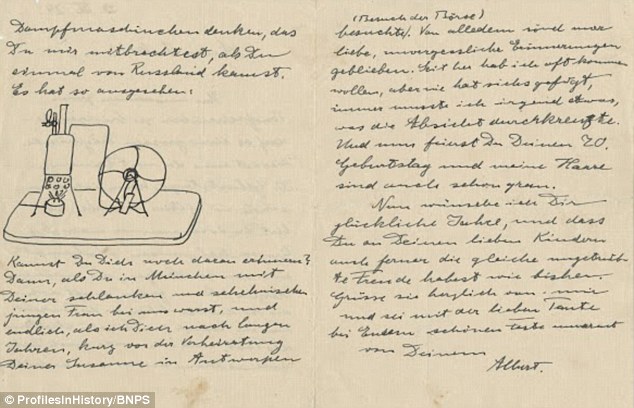 Dampfmaschinchen denken, das
Du mir mitbrachtest, als Du
einmal von Russland kamst.
Es hat so ausgesehen:
Kannst Du Dich noch daran erinnern?
Dann, als Du in München mit
Deiner schlanken und schelmischen
jungen Frau bei uns warst, und
endlich, als ich Dich nach langen
Jahren, kurz vor der Verheiratung
Deiner Susanne in Antwerpen
(Besuch der Börse)
besuchte. Von alledem sind mir
liebe, unvergessliche Erinnerungen
geblieben. Seither hab ich oft kommen
wollen, aber nie hat sichs gefügt,
immer musste ich irgend etwas,
was die Absicht durchkreuzte.
Und nun feierst Du Deinen 70.
Geburtstag und meine Haare
sind auch schon grau.
Nun wünsche ich Dir
glückliche Jahre, und dass
Du an Deinen lieben Kindern
auch ferner die gleiche ungetrübte
Freude habest wie bisher.
Grüsse sie herzlich von mir
und sei mit der lieben Tante
bei Euerm schönen Feste umarmt
von Deinem
Albert.
© ProfilesInHistory/BNPS